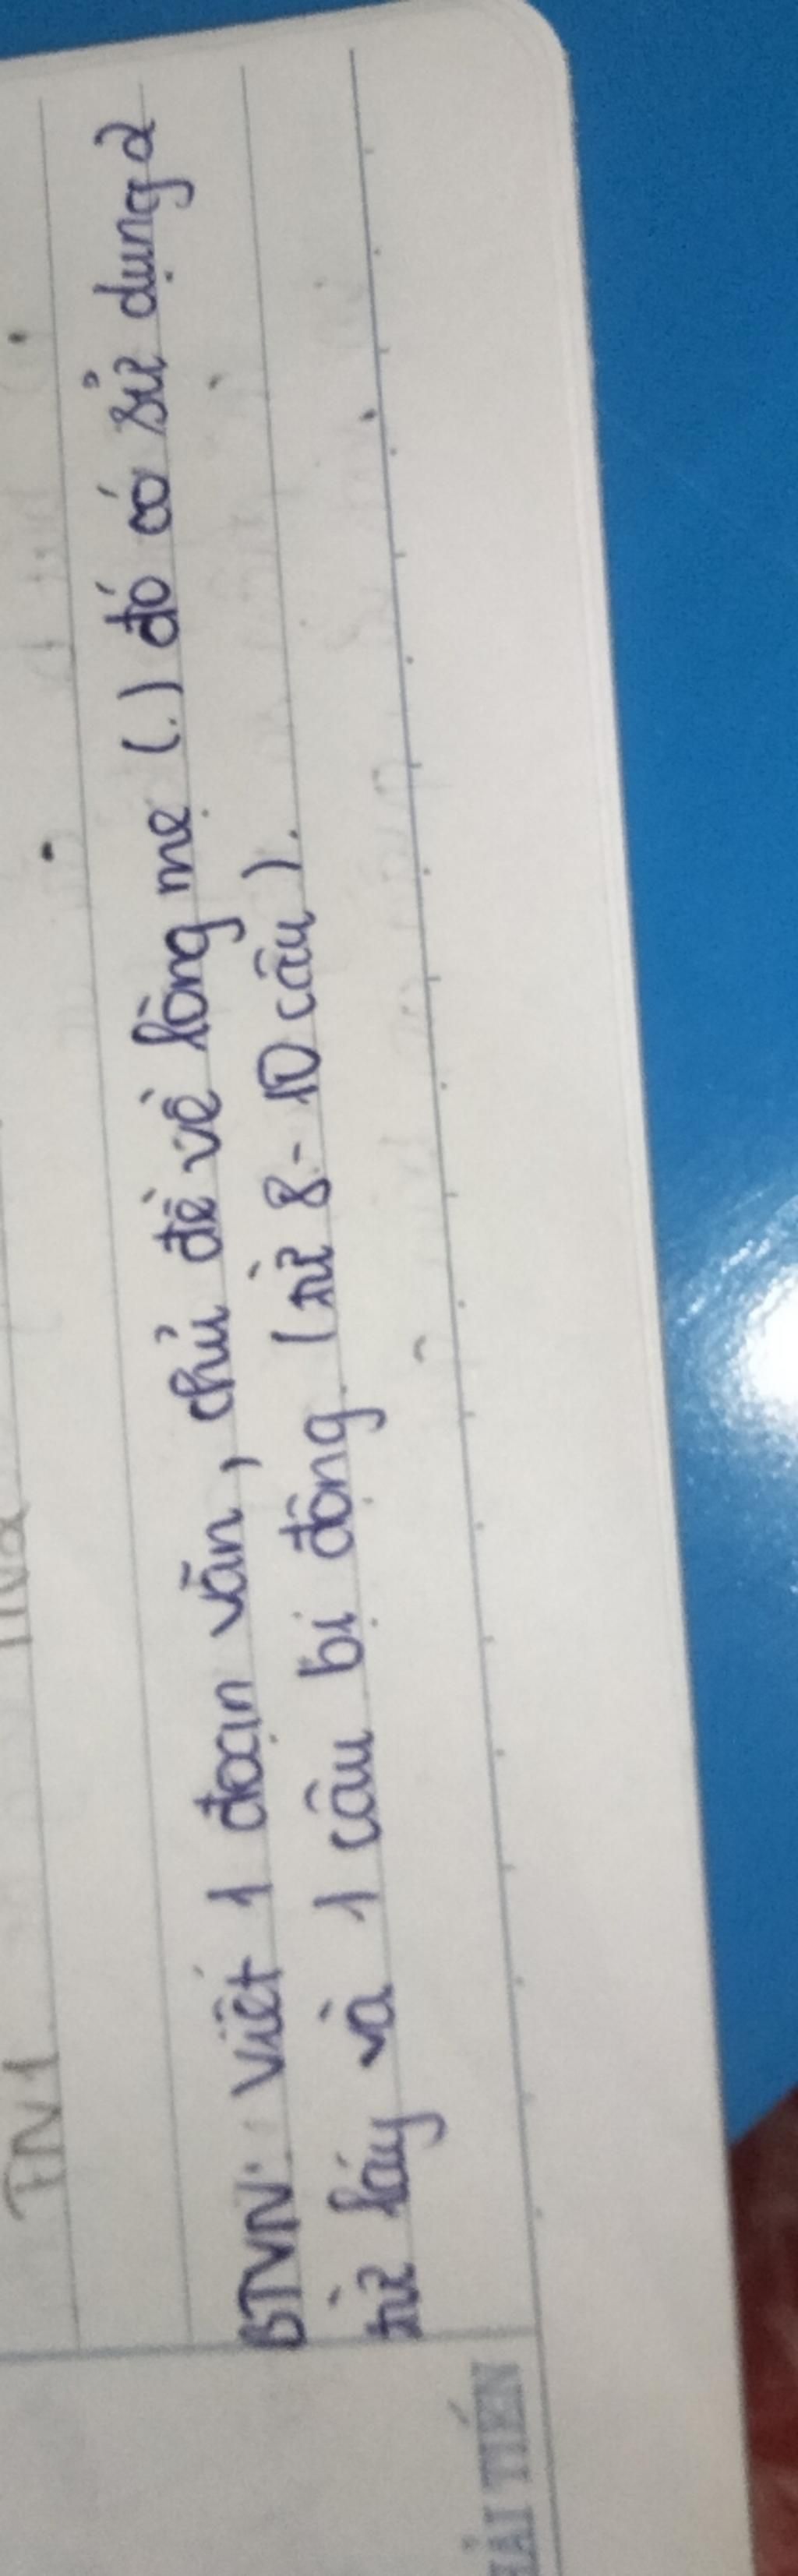 TN1
BTVN: Viết 1 đoạn văn, chủ đề về lòng mẹ (.) đó có sử dụng 2
từ láy và 1 câu bị động. (từ 8 - 10 câu).
HẢI TIẾN